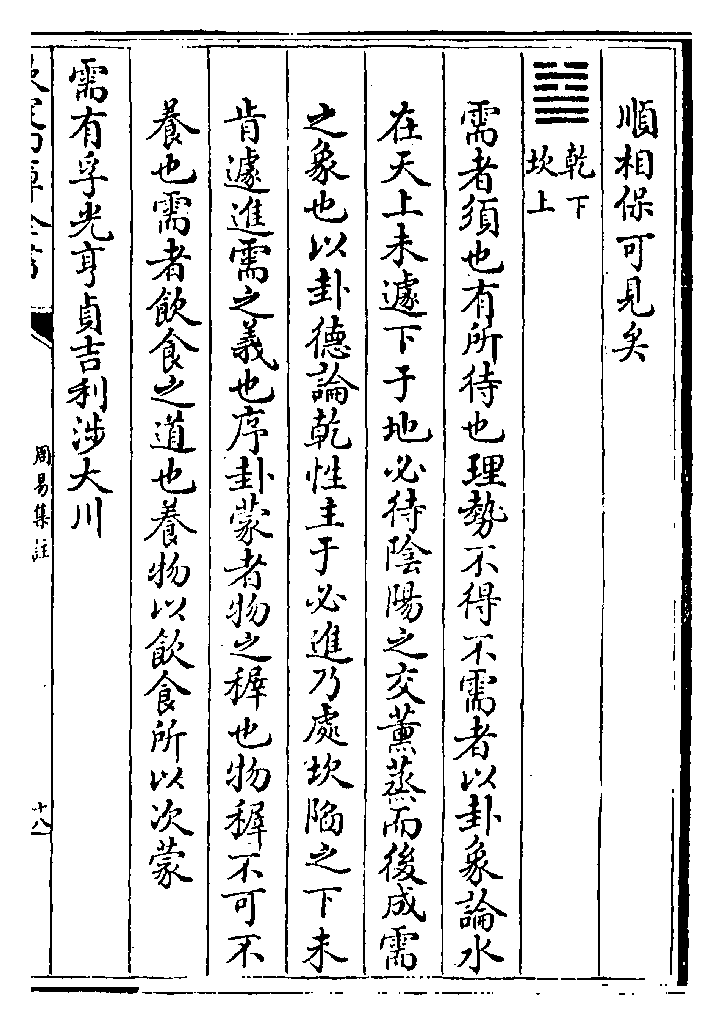 順相保可見矣
䷄
乾下
坎上
需者須也有所待也理勢不得不需者以卦象論水
在天上未遽下于地必待陰陽之交薫蒸而後成需
之象也以卦德論乾性主于必進乃處坎陷之下未
肯遽進需之義也序卦蒙者物之穉也物穉不可不
養也需者飲食之道也養物以飲食所以次蒙
需有孚光亨貞吉利涉大川
周易集註
十八